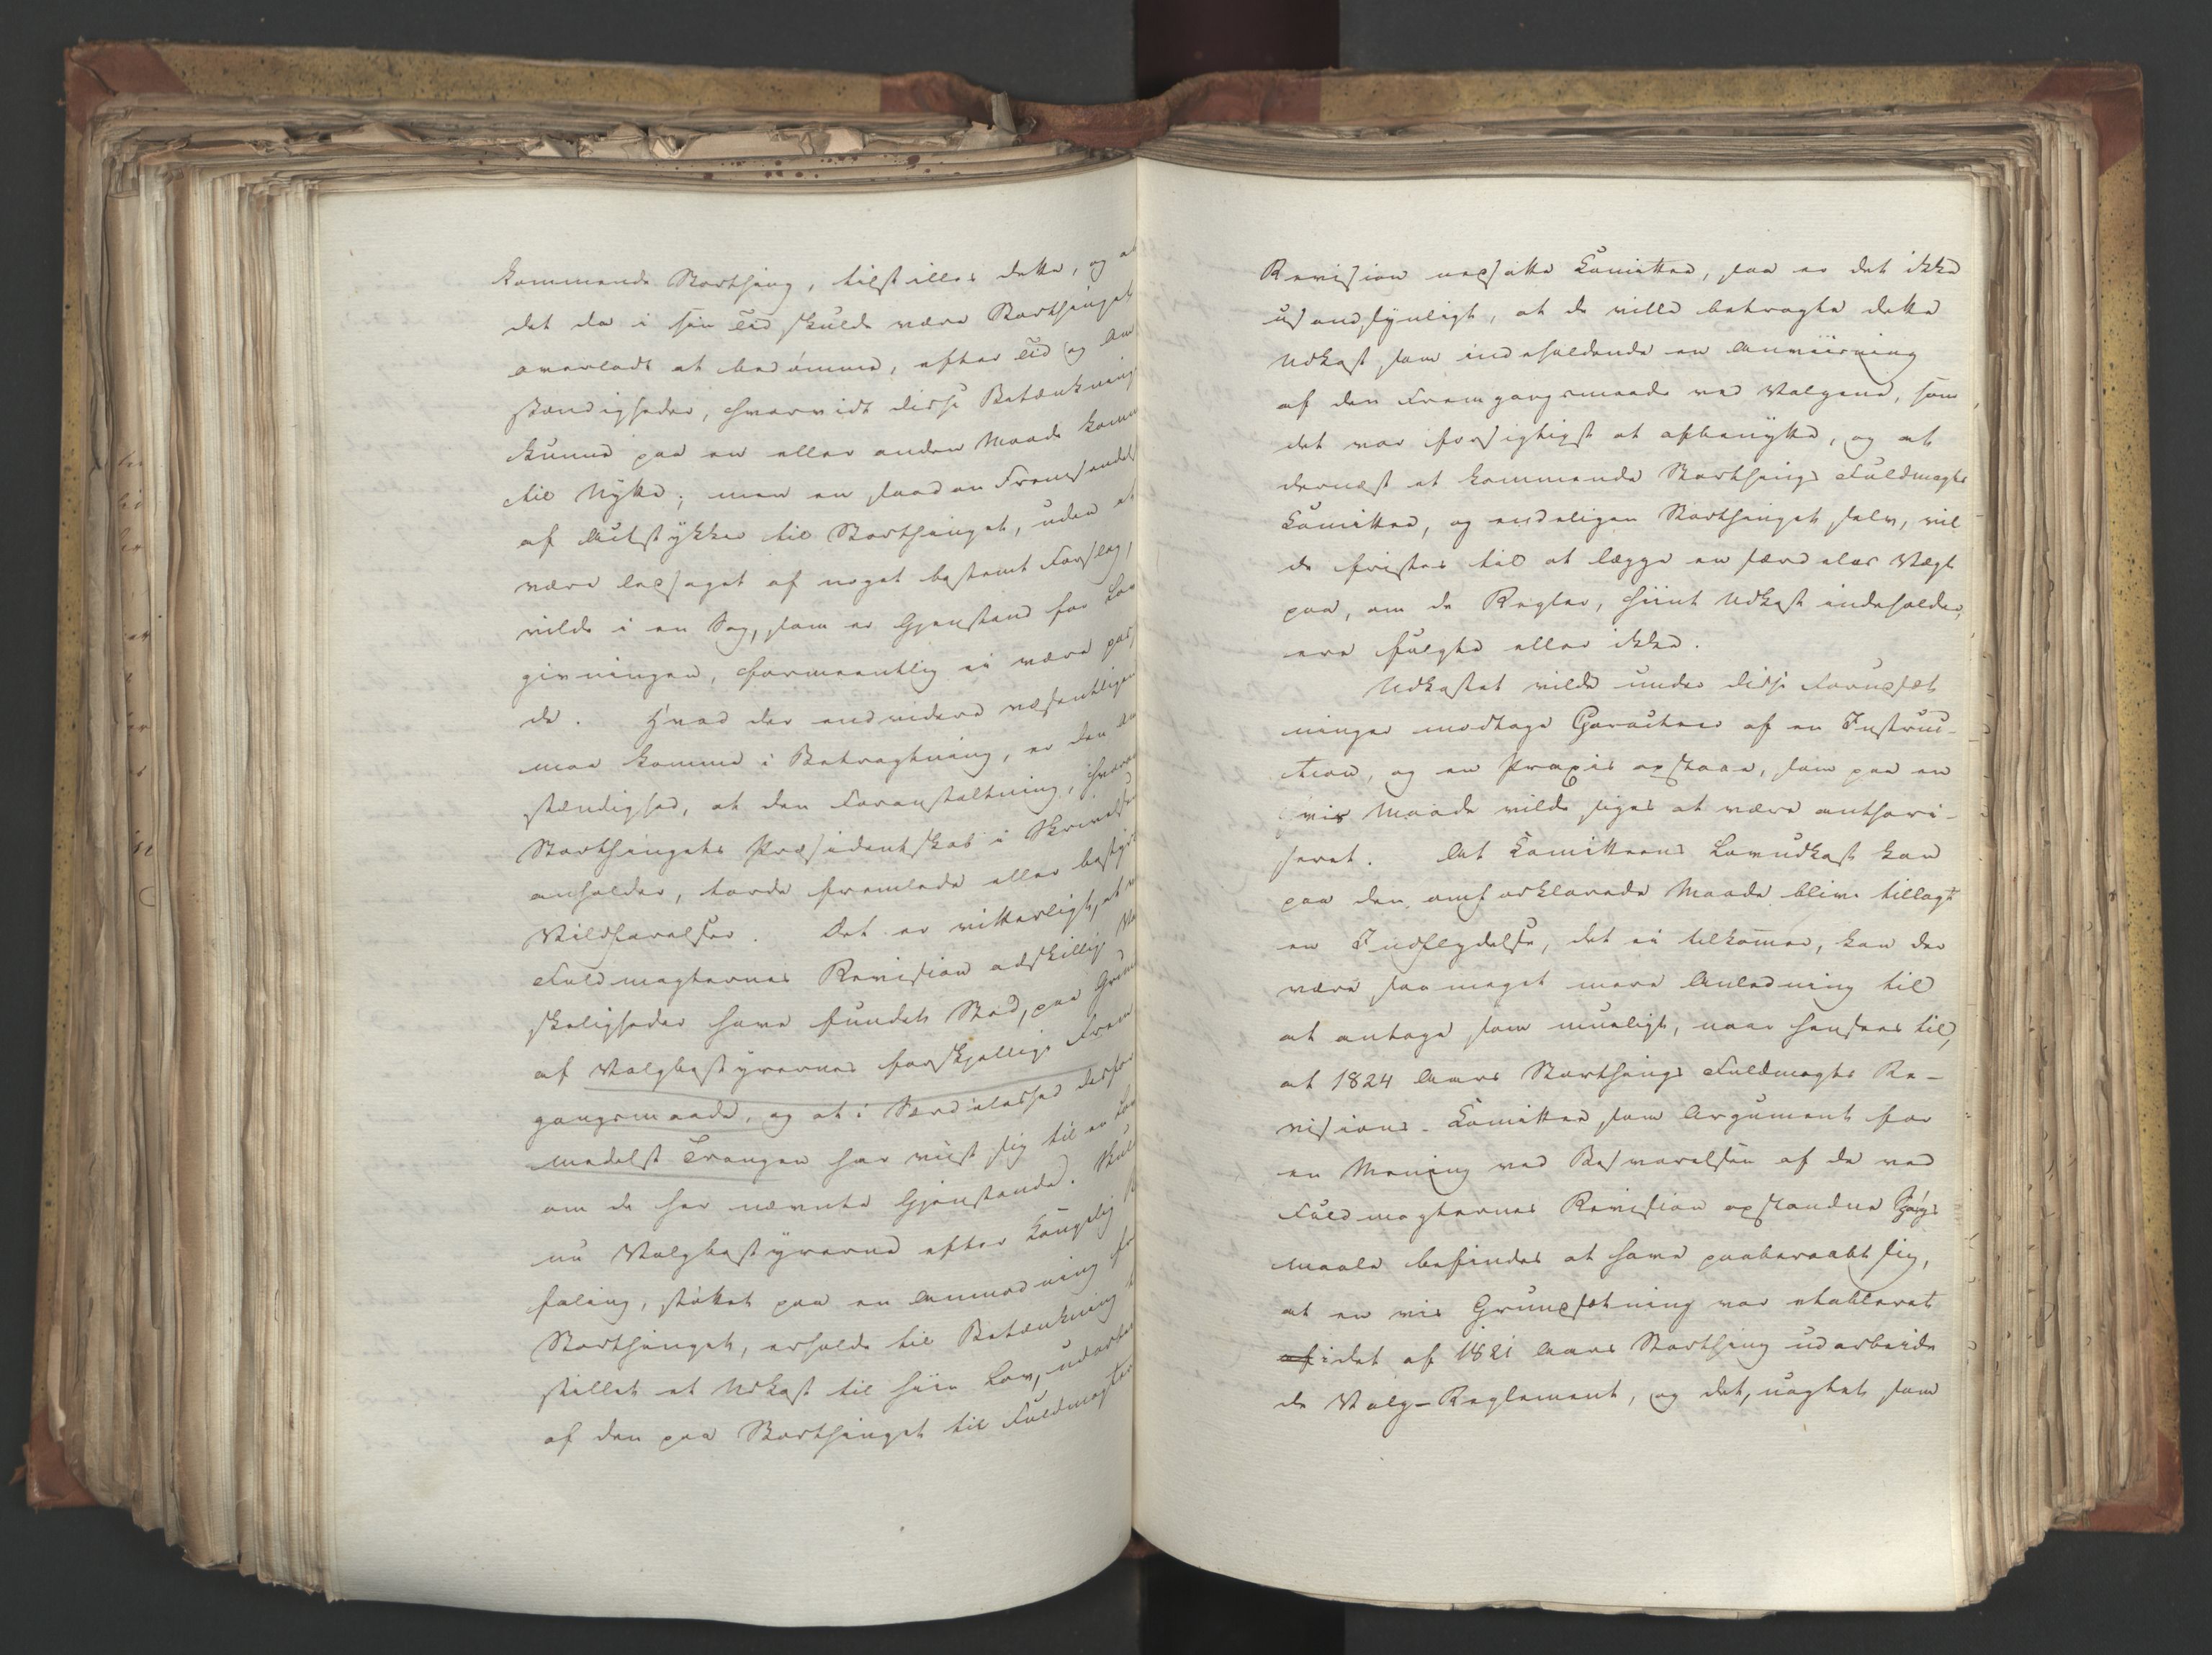 kommende Storthing, tilstilles dette, og at
det da i sin Tid skulde være Storthinget
overladt at bedømme, efter Tid og Om
stændigheder, hvorvidt disse Betænkning
kunne paa en eller anden Maade komme
til Nytte; men en saadan Fremsendels
af Actstykker til Storthinget, uden at
være ledsaget af noget bestemt Forslag,
vilde i en Sag, som er Gjenstand for Lov
givningen, formeentlig ei være pas
de. Hvad der endvidere væsentligen
maa komme i Betragtning, er den Om
stændighed, at den Foranstaltning, hvorom
Storthingets Præsidentskab i Skrivelse
anholder, torde fremlede eller bestyrke
Vildfarelser. Det er vitterligt, at ved
Fuldmagternes Revision adskillige Va
skeligheder have fundet Sted, paa Grund
af Valgbestyrernes forskjellige Frem
gangsmaade, og at i Særdeleshed derfor
medelst Trangen har viist sig til en Lov
om de her nævnte Gjenstande. Skulde
nu Valgbestyrerne efter Kongelig Be
faling, støttet paa en Anmodning fra
Storthinget, erholde til Betænkning
stillet et Udkast til hiin Lov, udarbei
af den paa Storthinget til Fuldmagter
Revision nedsatte Comittee, saa er det ikke
usandsynligt, at de ville betragte dette
Udkast som indeholdende en Anviisning
af den Fremgangsmaade ved Valgene, som
det var forsigtigst at afbenytte, og at
dernæst et kommende Storthings Fuldmagts
Comittee, og endeligen Storthinget selv, vil
de fristes til at lægge en særdeles Vægt
paa, om de Regler, hiint Udkast indeholder,
ere fulgte eller ikke.
Udkastet vilde under disse Forudsæt
ninger modtage Caracteer af en Instruc-
tion, og en Praxis opstaae, som paa en
vis Maade vilde siges at være authori-
seret. At Comitteens Lovudkast kan
paa den omforklarede Maade blive tillagt
en Indflydelse, det ei tilkommer, kan der
være saa meget mere Anledning til
at antage som mueligt, naar hensees til,
at 1824 Aars Storthings Fuldmagts Re-
visions-Comittee som Argument for
en Mening ved Besvarelsen af de ved
Fuldmagternes Revision opstandne Spørgs
maale befindes at have paaberaabt sig,
at en vis Grundsætning var etableret
af i det af 1821 Aars Storthing udarbeide
de Valg-Reglement, og det, uagtet som